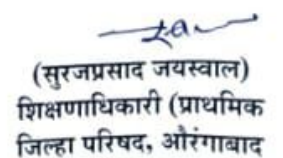 (सुरजप्रसाद जयस्वाल)
शिक्षणाधिकारी (प्राथमिक
जिल्हा परिषद, औरंगाबाद